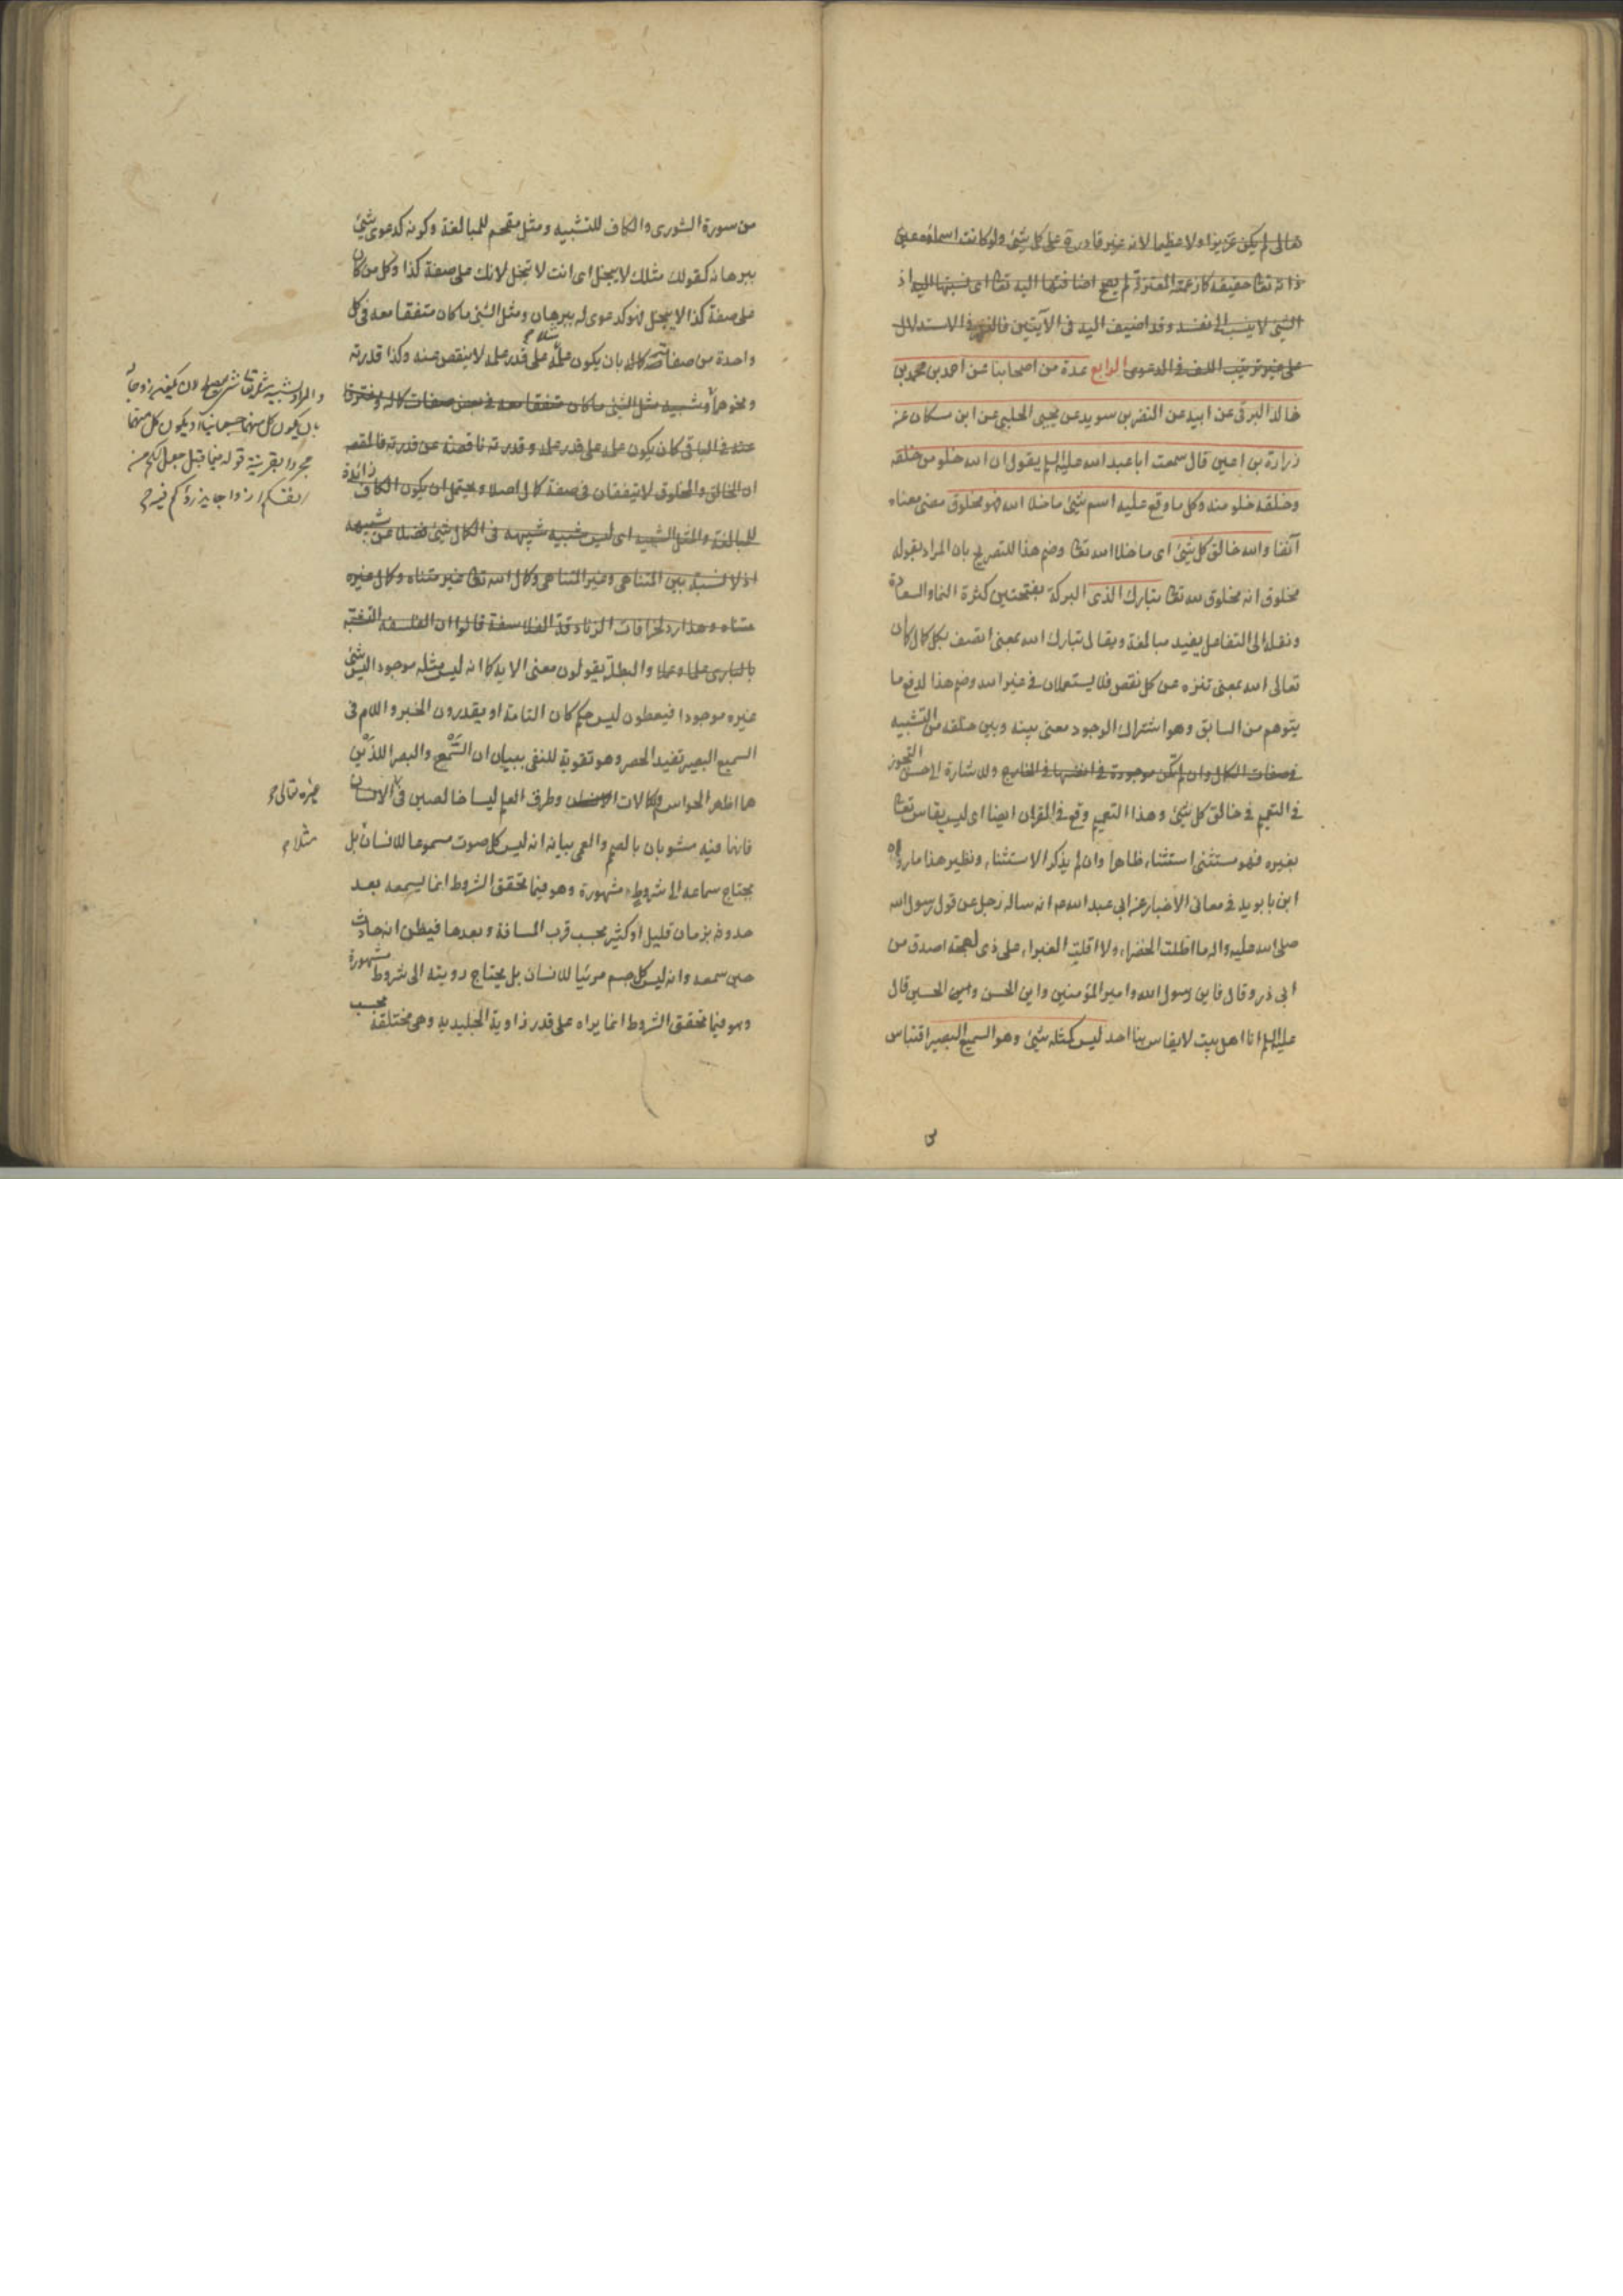 تعالى لم يكن عزيزا ولا عظيما لانه غير قادر على كل شيئ ولو كانت اسماؤه عين
ذاته تعالى حقيقة كما زعمته المعتزلة لم يصح اضافتها اليه تعالى اى نسبتها اليه اذ
الشيئ لا ينسب الى نفسه وقد اضيف اليه فى الآيتين فالنهى فى الاستدلال
على غير ترتيب اللف فى الدعوى الرابع عدة من اصحابنا عن احمد بن محمد بن
خالد البرقى عن ابيه عن النضر بن سويد عن يحيى الحلبى عن ابن مسكان عن
زرارة بن اعين قال سمعت ابا عبد الله عليه السلم يقول ان الله خلو من خلقه
وخلقه خلو منه وكل ما وقع عليه اسم شيئ ما خلا الله فهو مخلوق مضى معناه
آنفا والله خالق كل شيئ اى ما خلا الله تعالى وضم هذا للتصريح بان المراد بقوله
مخلوق انه مخلوق لله تعالى تبارك الذى البركة بفتحتين كثرة النماء والسعادة
ونقله الى التفاعل يفيد مبالغة ويقال تبارك الله بمعنى اتصف بكل كمال كما ان
تعالى الله بمعنى تنزه عن كل نقص فلا يستعملان فى غير الله وضم هذا لدفع ما
يتوهم من السابق وهو اشتراك الوجود معنى بينه وبين خلقه من التشبيه
فى صفات الكمال وان لم تكن موجودة فى انفسها فى الخارج وللاشارة الى حسن التجوز
فى التعميم فى خالق كل شيئ وهذا التعميم وقع فى القرآن ايضا اى ليس يقاس تعالى
بغيره فهو مستثنى استثناء ظاهرا وان لم يذكر الاستثناء ونظير هذا ما رواه
ابن بابويه فى معانى الاخبار عن ابى عبد الله عم انه ساله رجل عن قول رسول الله
صلى الله عليه واله ما اظلت الخضراء ولا اقلت الغبراء على ذى لهجة اصدق من
ابى ذر وقال فاين رسول الله وامير المؤمنين واين الحسن واين الحسين قال
عليه السلم انا اهل بيت لا يقاس بنا احد ليس كمثله شيئ وهو السميع البصير اقتباس
من سورة الشورى والكاف للتشبيه ومثل مقحم للمبالغة وكونه كدعوى شيئ
ببرهانه كقولك مثلك لا يبخل اى انت لا تبخل لانك على صفة كذا وكل من كان
على صفة كذا لا يبخل فهو كدعوى له ببرهان ومثل الشيئ ما كان متفقا معه فى كل
واحدة من صفات كماله بان يكون علمه مثلا على قدر علمه لا ينقص عنه وكذا قدرته
ونحوها وشبيه مثل الشيئ ما كان متفقا معه فى بعض صفات كماله ومفترقا
عنه فى الباقى كان يكون علمه على قدر علمه وقدرته ناقصة عن قدرته فالمقصود
ان الخالق والمخلوق لا يتفقان فى صفة كمال اصلا ويحتمل ان يكون الكاف زائدة
للمبالغة والمثل الشبيه اى ليس شبيه شبيهه فى الكمال شيئ فضلا عن شبيهه
اذ لا نسبة بين المتناهى وغير المتناهى وكمال الله تعالى غير متناه وكمال غيره
متناه وهذا رد لخرافات الزنادقة الفلاسفة قالوا ان الفلسفة التشبه
بالبارى علما وعملا والبطلة يقولون معنى الآية كما انه ليس مثله موجودا ليس شيئ
غيره موجودا فيعطون ليس حكم كان التامة او يقدرون الخبر واللام فى
السميع البصير تفيد الحصر وهو تقوية للنفى ببيان ان السمع والبصر اللذين
هما اظهر الحواس وكمالات وطرق العلم ليسا خالصين فى الانسان
فانهما فيه مشوبان بالصمم والعمى بيانه انه ليس كل صوت مسموعا للانسان بل
يحتاج سماعه الى شروط مشهورة وهو فيما تحقق الشروط انما يسمعه بعد
حدوثه بزمان قليل او كثير بحسب قرب المسافة وبعدها فيظن انه حادث
حين سمعه وانه ليس كل جسم مرئيا للانسان بل يحتاج رويته الى شروط مشهورة
وهو فيما تحقق الشروط انما يراه على قدر زاوية الجليدية وهى مختلفة بحسب
بان يكون كل منهما جسمانيا او يكون كل منهما
مجردا بقرينة قوله فيما قبل جعل لكم من
انفسكم ازواجا يذرؤكم فيه
غيره تعالى
مثلا